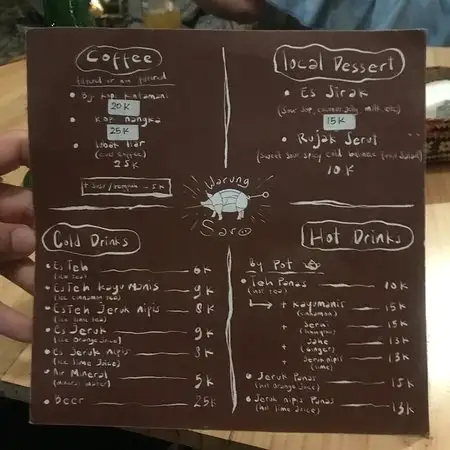 Coffee
filtered or non filtered
By Kopi Kintamani
20K
Kopi nangka
25K
Lobak liar
(cold coffee)
25K
+ Susu / rempah - 5K
local Dessert
Es Sirak
(Sour sop, coconut jelly, milk etc)
15K
Rujak Serut
(Sweet sour spicy cold balinese fruit salad)
10K
Warung
Saro
Cold Drinks
Es Teh 6K
(ice tea)
Es Teh kayu Manis 9K
(ice cinnamon tea)
Es Teh Jeruk nipis 8K
(ice lime tea)
Es Jeruk 9K
(ice orange juice)
Es Jeruk nipis 8K
(ice lime juice)
Air Mineral 5K
(mineral water)
Beer 25K
Hot Drinks
By Pot
Teh Panas 10K
(hot tea)
+ Kayumanis 15K
(cinnamon)
+ Serai 15K
+ Jahe 13K
(ginger)
+ Jeruk nipis 13K
(lime)
Jeruk Panas 15K
(hot orange juice)
Jeruk nipis Panas 13K
(hot lime juice)